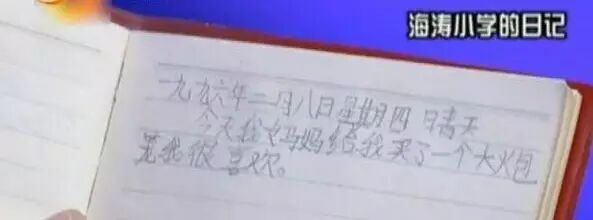 海涛小学的日记
一九九六年二月八日星期四 晴天
今天我妈妈给我买了一个大炮
我很喜欢。